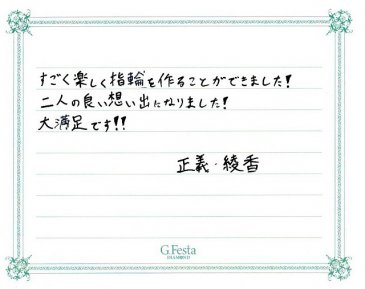 すごく楽しく指輪を作ることができました!
二人の良い想い出になりました!
大満足です!!
正義・綾香
G.Festa
DIAMOND